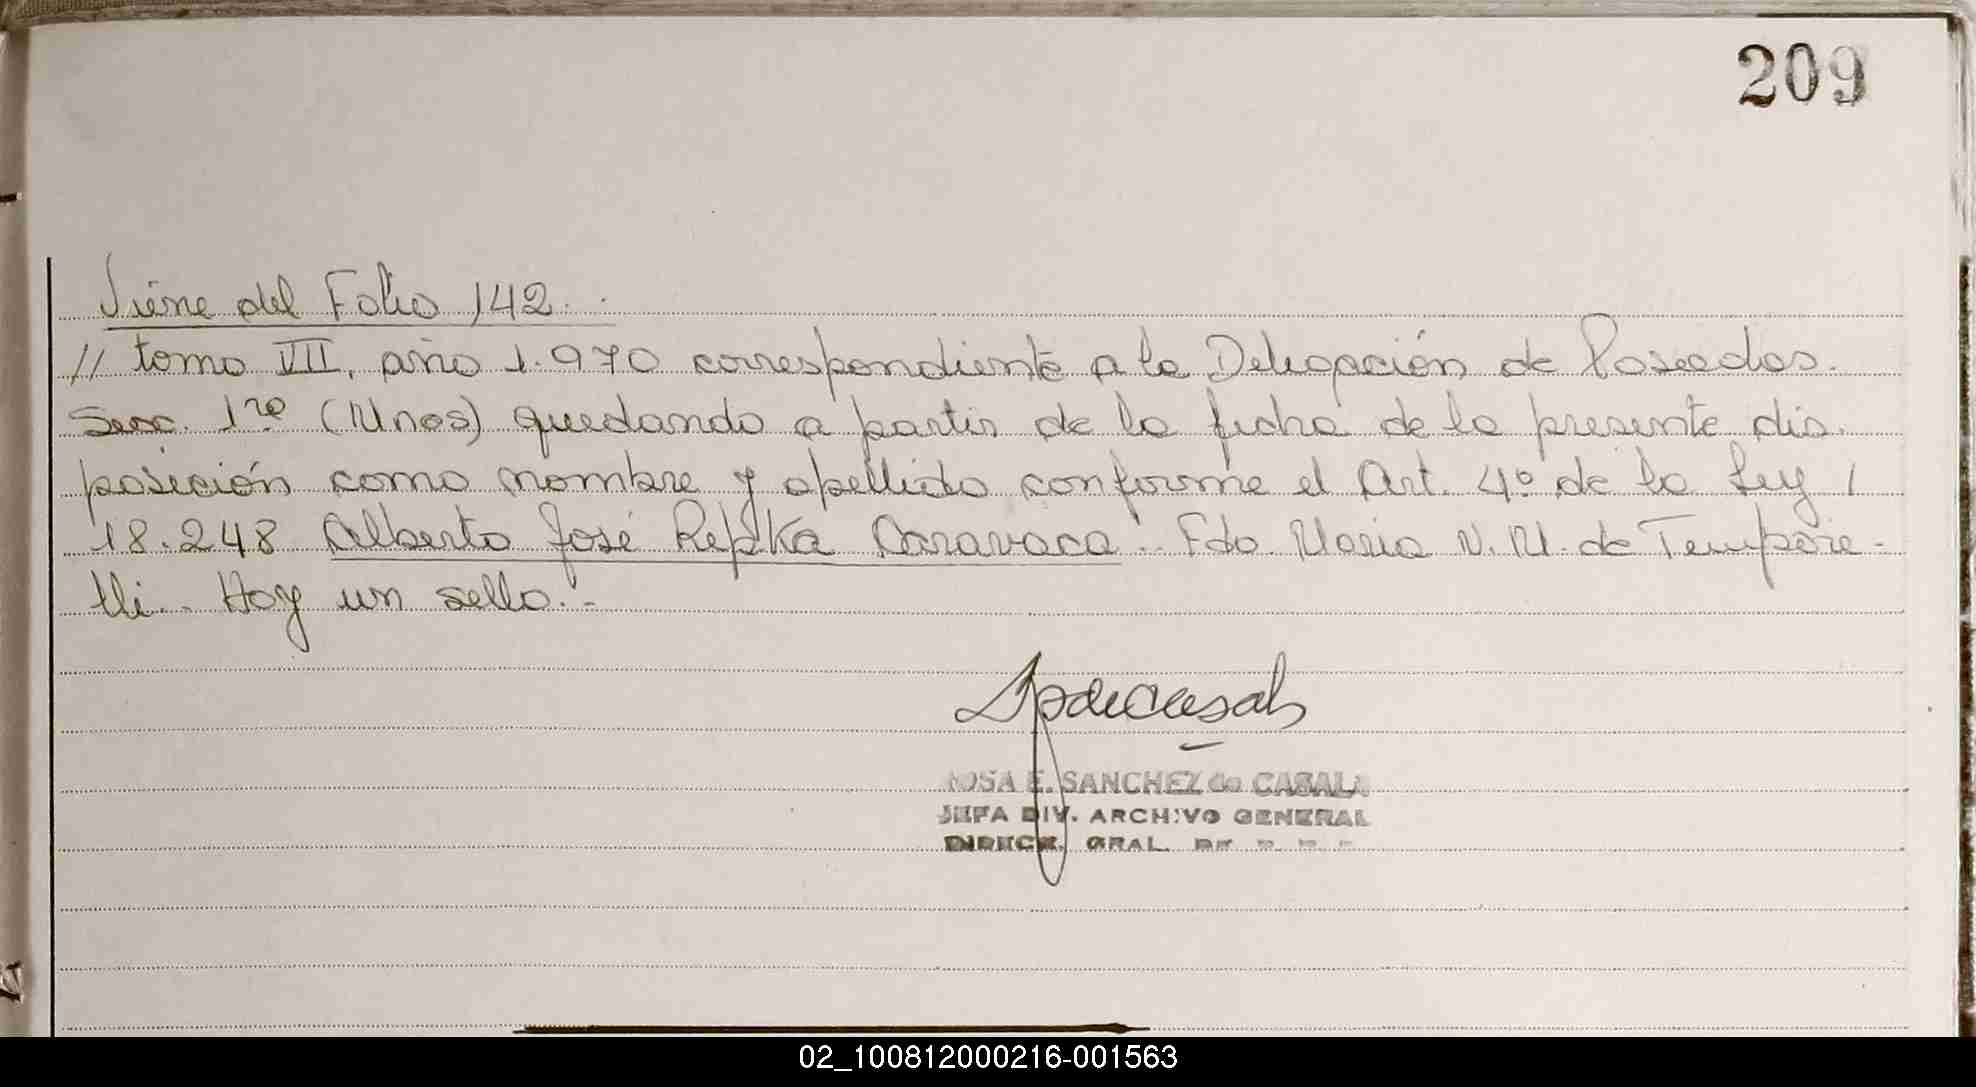 209
Viene del Folio 142.
// tomo VII, año 1.970 correspondiente a la Delegación de Posadas.
Secc. 1ra (Mnes) quedando a partir de la fecha de la presente dis-
posición como nombre y apellido conforme el Art. 4º de la Ley /
18.248 Alberto José Repka Caravaca. Fdo. Maria N. M. de Tempore-
lli. Hay un sello.-
ROSA E. SANCHEZ de CASALA
JEFA DIV. ARCHIVO GENERAL
DIRECC. GRAL. DE
02_100812000216-001563